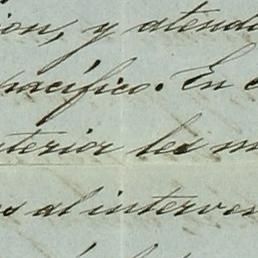 ion, y atend
pacífico. En e
terior les m
os al interve